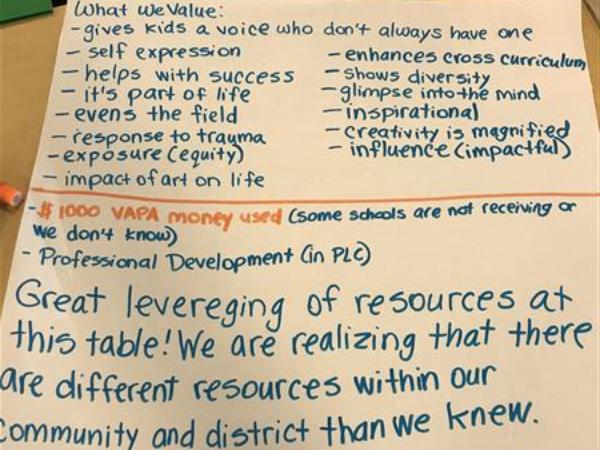 What we Value:
-gives kids a voice who don't always have one
- self expression
- helps with success
- it's part of life
- evens the field
- response to trauma
- exposure (equity)
- impact of art on life
- enhances cross curriculum
- shows diversity
- glimpse into the mind
- inspirational
- creativity is magnified
- influence (impactful)
- $1000 VAPA money used (some schools are not receiving or
we don't know)
- Professional Development (in PLC)
Great levereging of resources at
this table! We are realizing that there
are different resources within our
community and district than we knew.